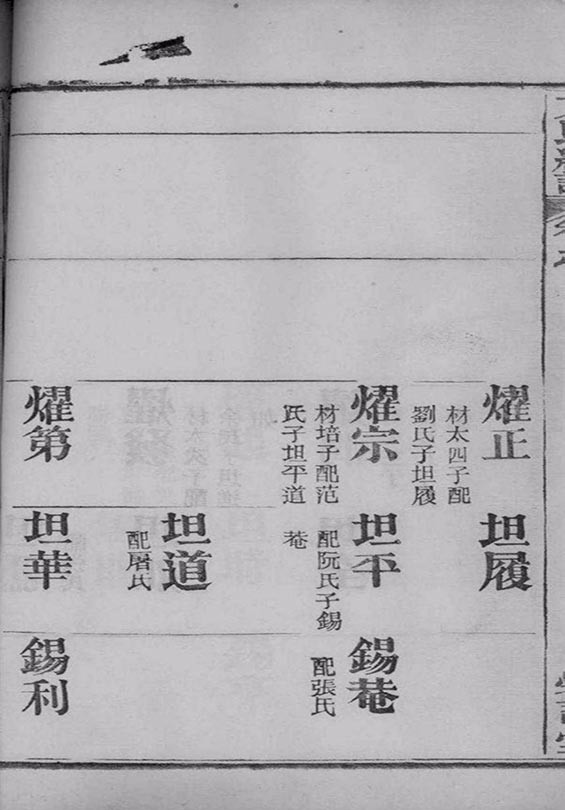 耀正
材太四子配
劉氏子坦履
坦履
耀宗
材培子配范
氏子坦平道
坦平
配阮氏子錫
菴
錫菴
配張氏
坦道
配屠氏
耀第
坦華
錫利